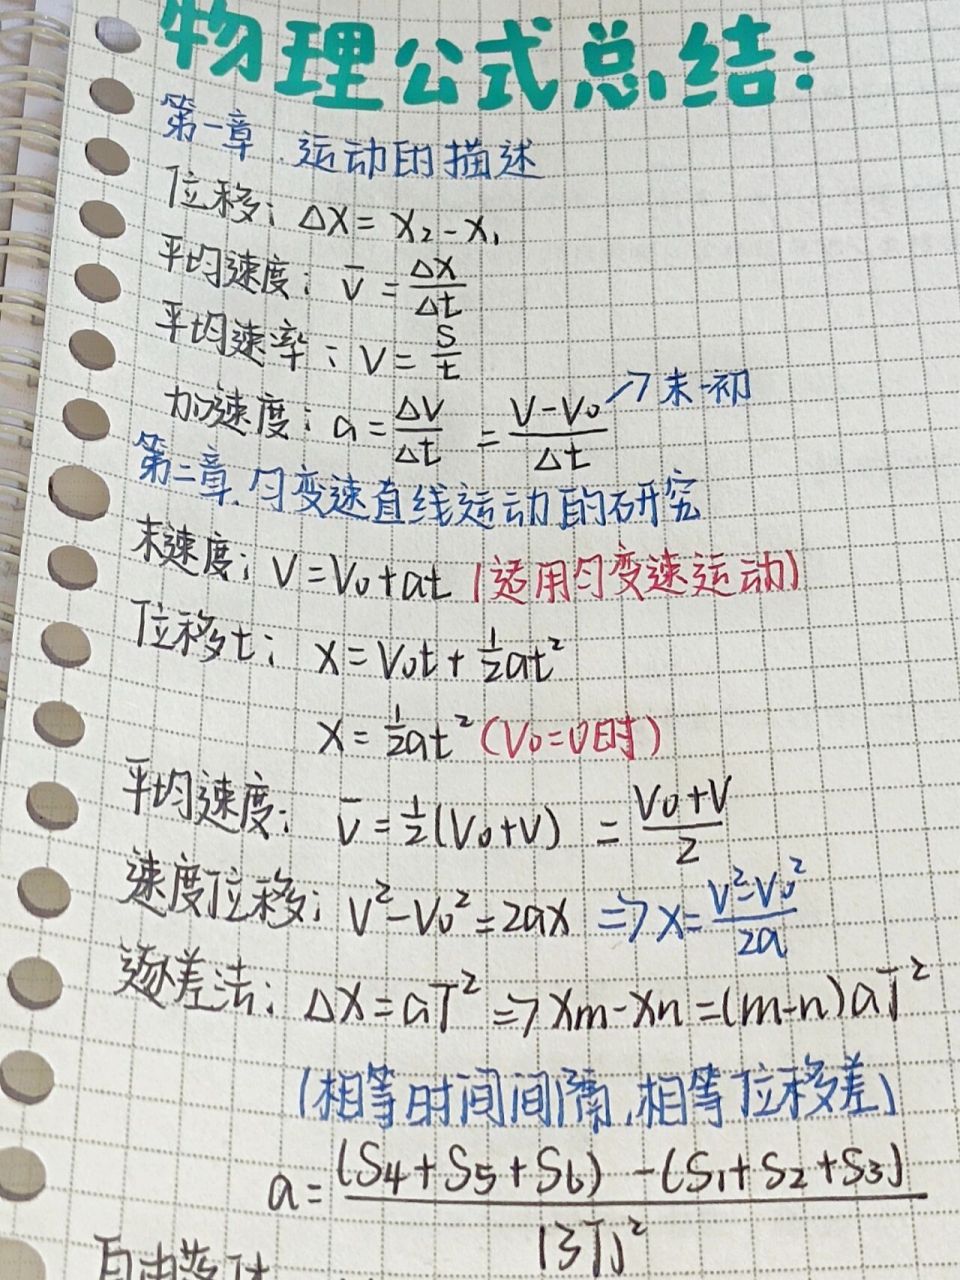 物理公式总结:
第一章.运动的描述
位移: ΔX = X₂ - X₁
平均速度: v̄ = ΔX/Δt
平均速率: V = S/t
加速度: a = ΔV/Δt = (V-V₀)/Δt → 末-初
第二章.匀变速直线运动的研究
末速度: V = V₀ + at (适用匀变速运动)
位移t: X = V₀t + ½at²
X = ½at² (V₀=0时)
平均速度: v̄ = ½(V₀+V) = (V₀+V)/2
速度位移: V²-V₀² = 2ax ⇒ X = (V²-V₀²)/2a
逐差法: ΔX = aT² ⇒ Xm-Xn = (m-n)aT²
(相等时间间隔,相等位移差)
a = ((S4+S5+S6) - (S1+S2+S3))/(3T)²
自由落体